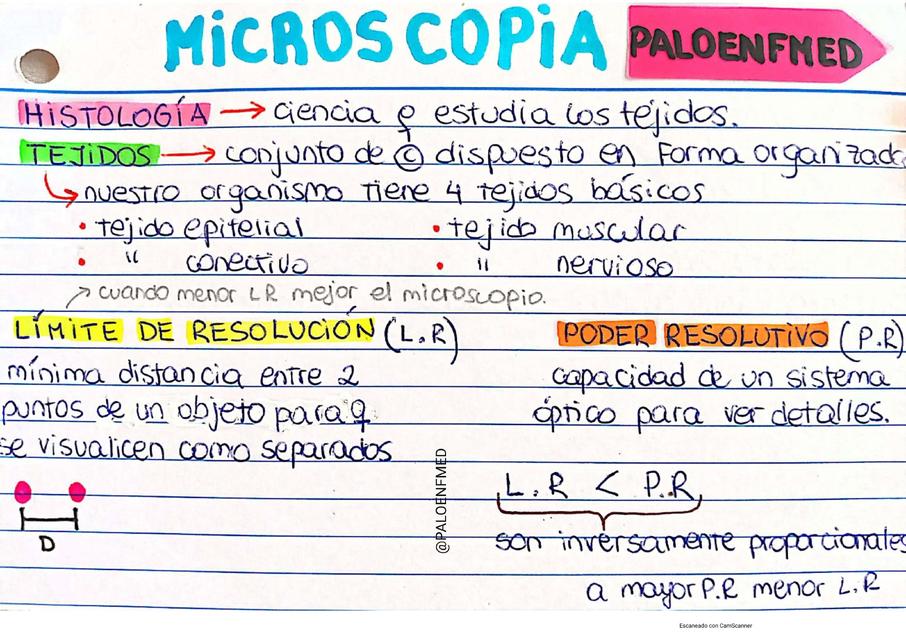 MiCROSCOPiA
PALOENFMED
HiSTOLOGÍA → ciencia q estudia los tejidos.
TEJiDOS → conjunto de © dispuesto en Forma organizada
↳ nuestro organismo tiene 4 tejidos básicos
• tejido epitelial • tejido muscular
• " conectivo • " nervioso
↗ cuando menor LR mejor el microscopio.
LÍMITE DE RESOLUCIÓN (L.R)
mínima distancia entre 2
puntos de un objeto para q
se visualicen como separados
D
PODER RESOLUTIVO (P.R)
capacidad de un sistema
óptico para ver detalles.
L.R < P.R
son inversamente proporcionales
a mayor P.R menor L.R
@PALOENFMED
Escaneado con CamScanner